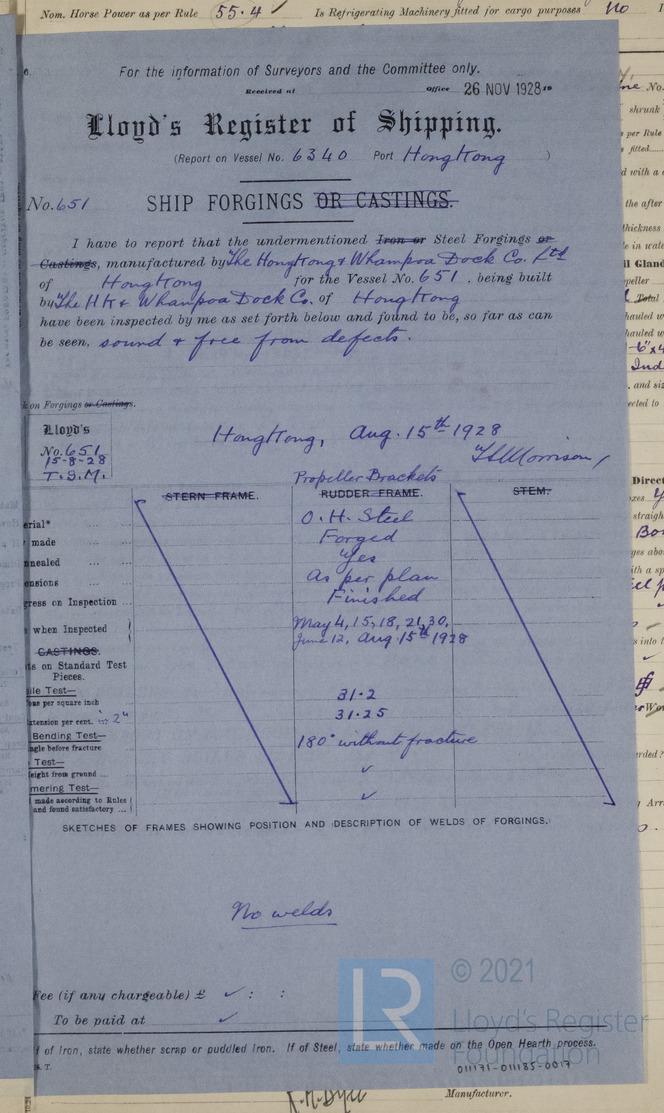 Nom. Horse Power as per Rule 55.4 Is Refrigerating Machinery fitted for cargo purposes No
For the information of Surveyors and the Committee only.
Received at Office 26 NOV 1928 19
Lloyd's Register of Shipping.
(Report on Vessel No. 6340 Port Hong Kong )
No. 651 SHIP FORGINGS OR CASTINGS.
I have to report that the undermentioned Iron or Steel Forgings or
Castings, manufactured by The Hong Kong & Whampoa Dock Co. Ltd
of Hong Kong for the Vessel No. 651, being built
by The HK & Whampoa Dock Co. of Hong Kong
have been inspected by me as set forth below and found to be, so far as can
be seen, sound & free from defects.
on Forgings or Castings.
Lloyd's
No. 651
15-8-28
T.S.M.
Hong Kong, Aug. 15th 1928
Morrison
Propeller Brackets
STERN FRAME. RUDDER FRAME. STEM.
erial* O.H. Steel
made Forged
nnealed Yes
ensions As per plan
gress on Inspection ... Finished
s when Inspected May 4, 15, 18, 21, 30,
June 12, Aug. 15th 1928
CASTINGS.
ts on Standard Test
Pieces.
ile Test—
ons per square inch 31.2
xtension per cent. in 2" 31.25
Bending Test—
ngle before fracture 180° without fracture
Test—
eight from ground ... ✓
mering Test—
made according to Rules
and found satisfactory ... ✓
SKETCHES OF FRAMES SHOWING POSITION AND DESCRIPTION OF WELDS OF FORGINGS.
No welds
Fee (if any chargeable) £ ✓ : :
To be paid at ✓
f of Iron, state whether scrap or puddled Iron. If of Steel, state whether made on the Open Hearth process.
© 2021
Lloyd's Register
Foundation
011171-011185-0017
Manufacturer.